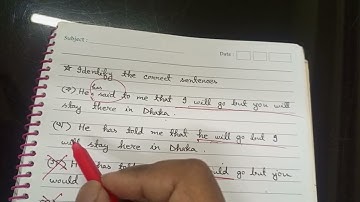 Subject :
Date :
* Identify the correct sentences
has
(ক) He said to me that I will go but you will
stay there in Dhaka.
(খ) He has told me that he will go but I
will stay here in Dhaka.
(গ) He has told would go but you
would